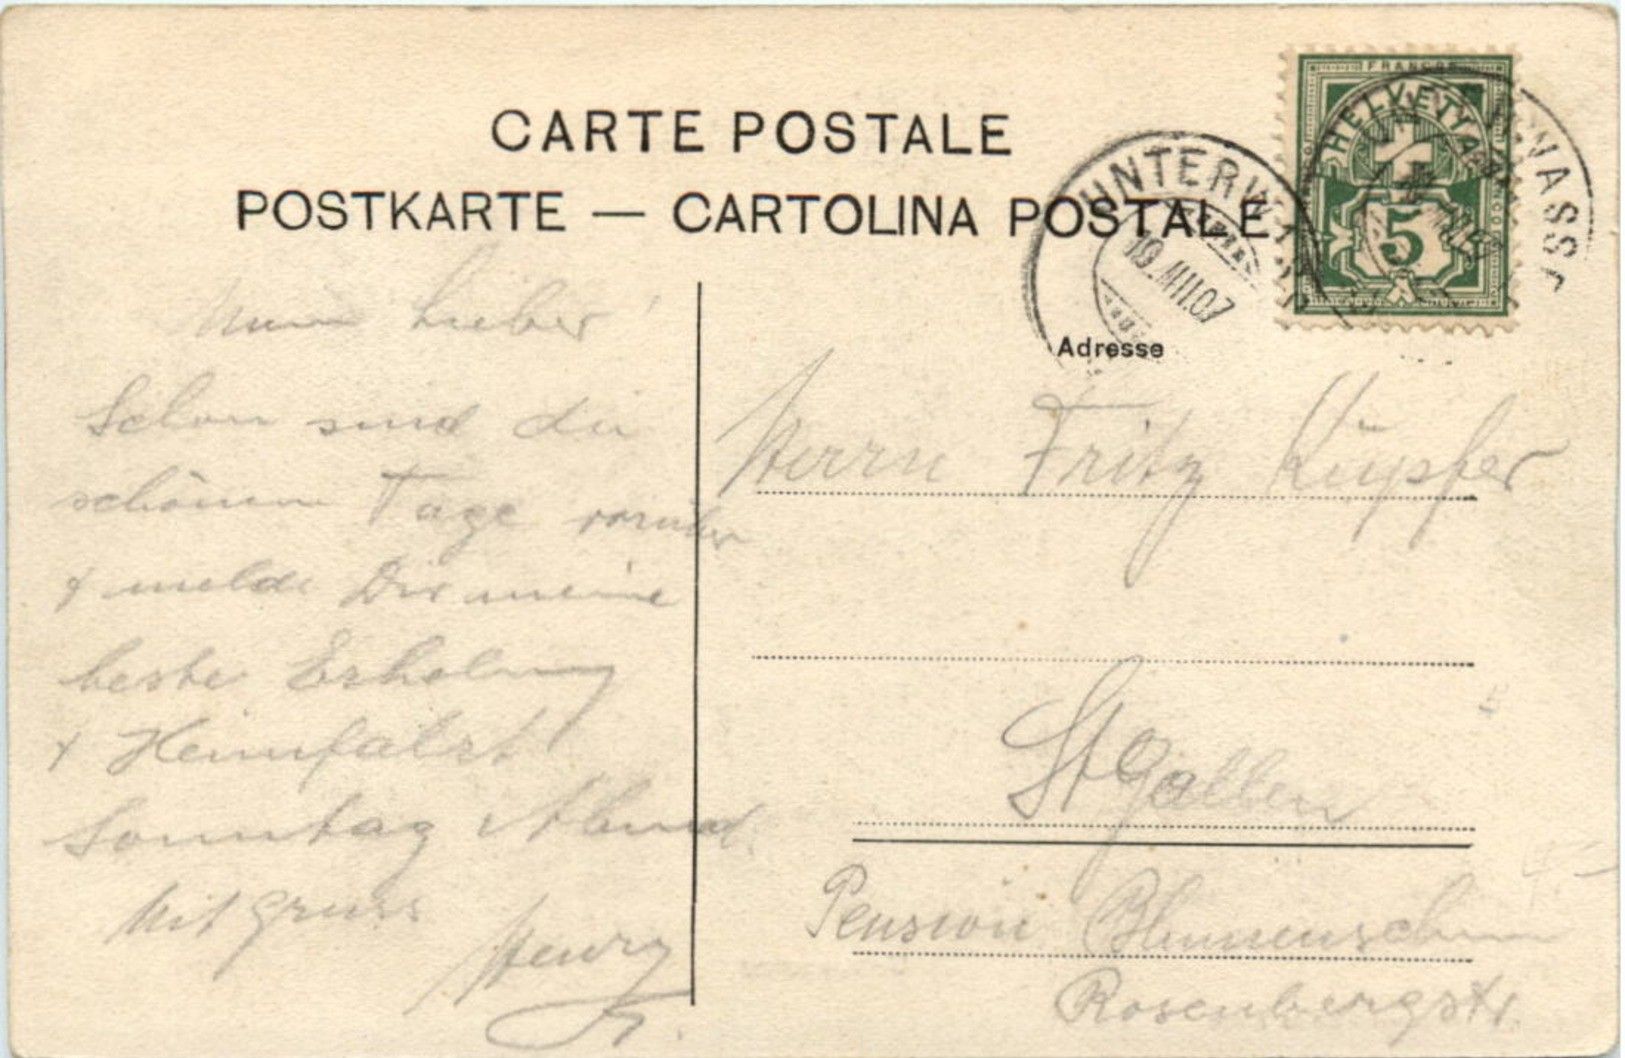 CARTE POSTALE
POSTKARTE — CARTOLINA POSTALE
FRANCO
HELVETIA
5
UNTERWASSER
19.VIII.07
UNTERWASSER
Adresse
Mein Lieber!
Schon sind die
schönen Tage vorüber
+ melde Dir meine
beste Erholung
+ Heimfahrt
Sonntag Abend.
Mit Gruss
Henry
Herrn Fritz Küpfer
St Gallen
Pension
Rosenbergstr.